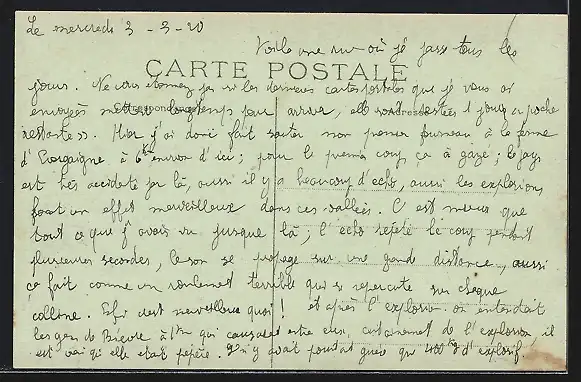 Le mercredi 3 - 3 - 20
Voila une rue où je passe tous les
CARTE POSTALE
jours. Ne vous étonnez pas si les dernières cartes postales que je vous ai
envoyées mettent longtemps pour arriver, elles sont postées 1 jour
Correspondance
Adresse
restante ». Hier j'ai donc fait sauter mon premier fourneau à la ferme
d' à 6 km environ d'ici ; pour le premier coup ça a gazé ; le pays
est très accidenté par là, aussi il y a beaucoup d'écho, aussi les explosions
font un effet merveilleux dans ces vallées. C'est mieux que
tout ce que j'avais vu jusque là ; l'écho répète le coup pendant
plusieurs secondes, le son se propage sur une grande distance, aussi
ça fait comme un roulement terrible qui se répercute sur chaque
colline. Enfin c'est merveilleux quoi ! et après l'explosion on entendait
les gens de Bièvre à 1 km qui causaient entre eux, de l'explosion il
est vrai qu'elle était pépère. Il n'y avait pourtant guère que 400 kg d'explosif !